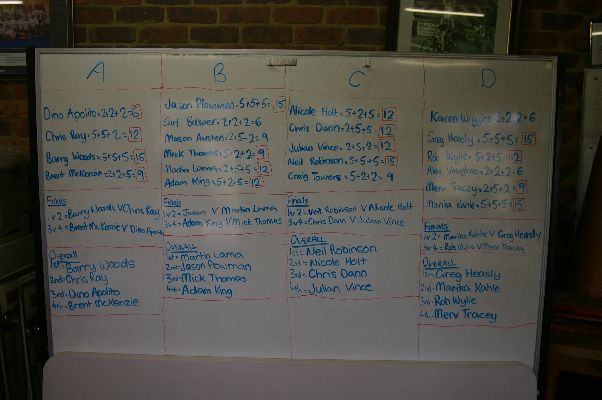 A
Dino Apolito = 2+2+2 = 6
Chris Ray = 5+5+2 = 12
Barry Woods = 5+5+5 = 15
Brent McKenzie = 2+2+5 = 9
Finals
1v2 = Barry Woods V Chris Ray
3v4 = Brent McKenzie V Dino Apolito
Overall
1st = Barry Woods
2nd = Chris Ray
3rd = Dino Apolito
4th = Brent McKenzie
B
Jason Plowman = 5+5+5 = 15
Carl Brewer = 2+2+2 = 6
Mason Austen = 2+5+2 = 9
Mick Thomas = 5+2+2 = 9
Martin Lama = 2+5+5 = 12
Adam King = 5+2+5 = 12
Finals
1v2 = Jason V Martin Lama
3v4 = Adam King V Mick Thomas
Overall
1st = Martin Lama
2nd = Jason Plowman
3rd = Mick Thomas
4th = Adam King
C
Nicole Holt = 5+2+5 = 12
Chris Dann = 2+5+5 = 12
Julian Vince = 2+5+5 = 12
Neil Robinson = 5+5+5 = 15
Craig Towers = 5+2+2 = 9
Finals
1v2 = Neil Robinson V Nicole Holt
3v4 = Chris Dann V Julian Vince
Overall
1st = Neil Robinson
2nd = Nicole Holt
3rd = Chris Dann
4th = Julian Vince
D
Karen Wiggins 2+2+2 = 6
Greg Heasly = 5+5+5 = 15
Rob Wylie = 5+2+5 = 12
Alex Vaughan = 2+2+2 = 6
Merv Tracey = 2+5+2 = 9
Marika Kahle = 5+5+5 = 15
Finals
1v2 = Marika Kahle V Greg Heasly
3v4 = Rob Wylie V Merv Tracey
Overall
1st = Greg Heasly
2nd = Marika Kahle
3rd = Rob Wylie
4th = Merv Tracey